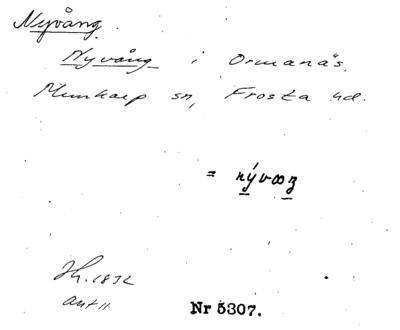 Nyvång.
Nyvång i Ormanäs,
Munkarp sn, Frosta hd.
= nývꝏz
Jh. 1832
ant 11
Nr 5307.